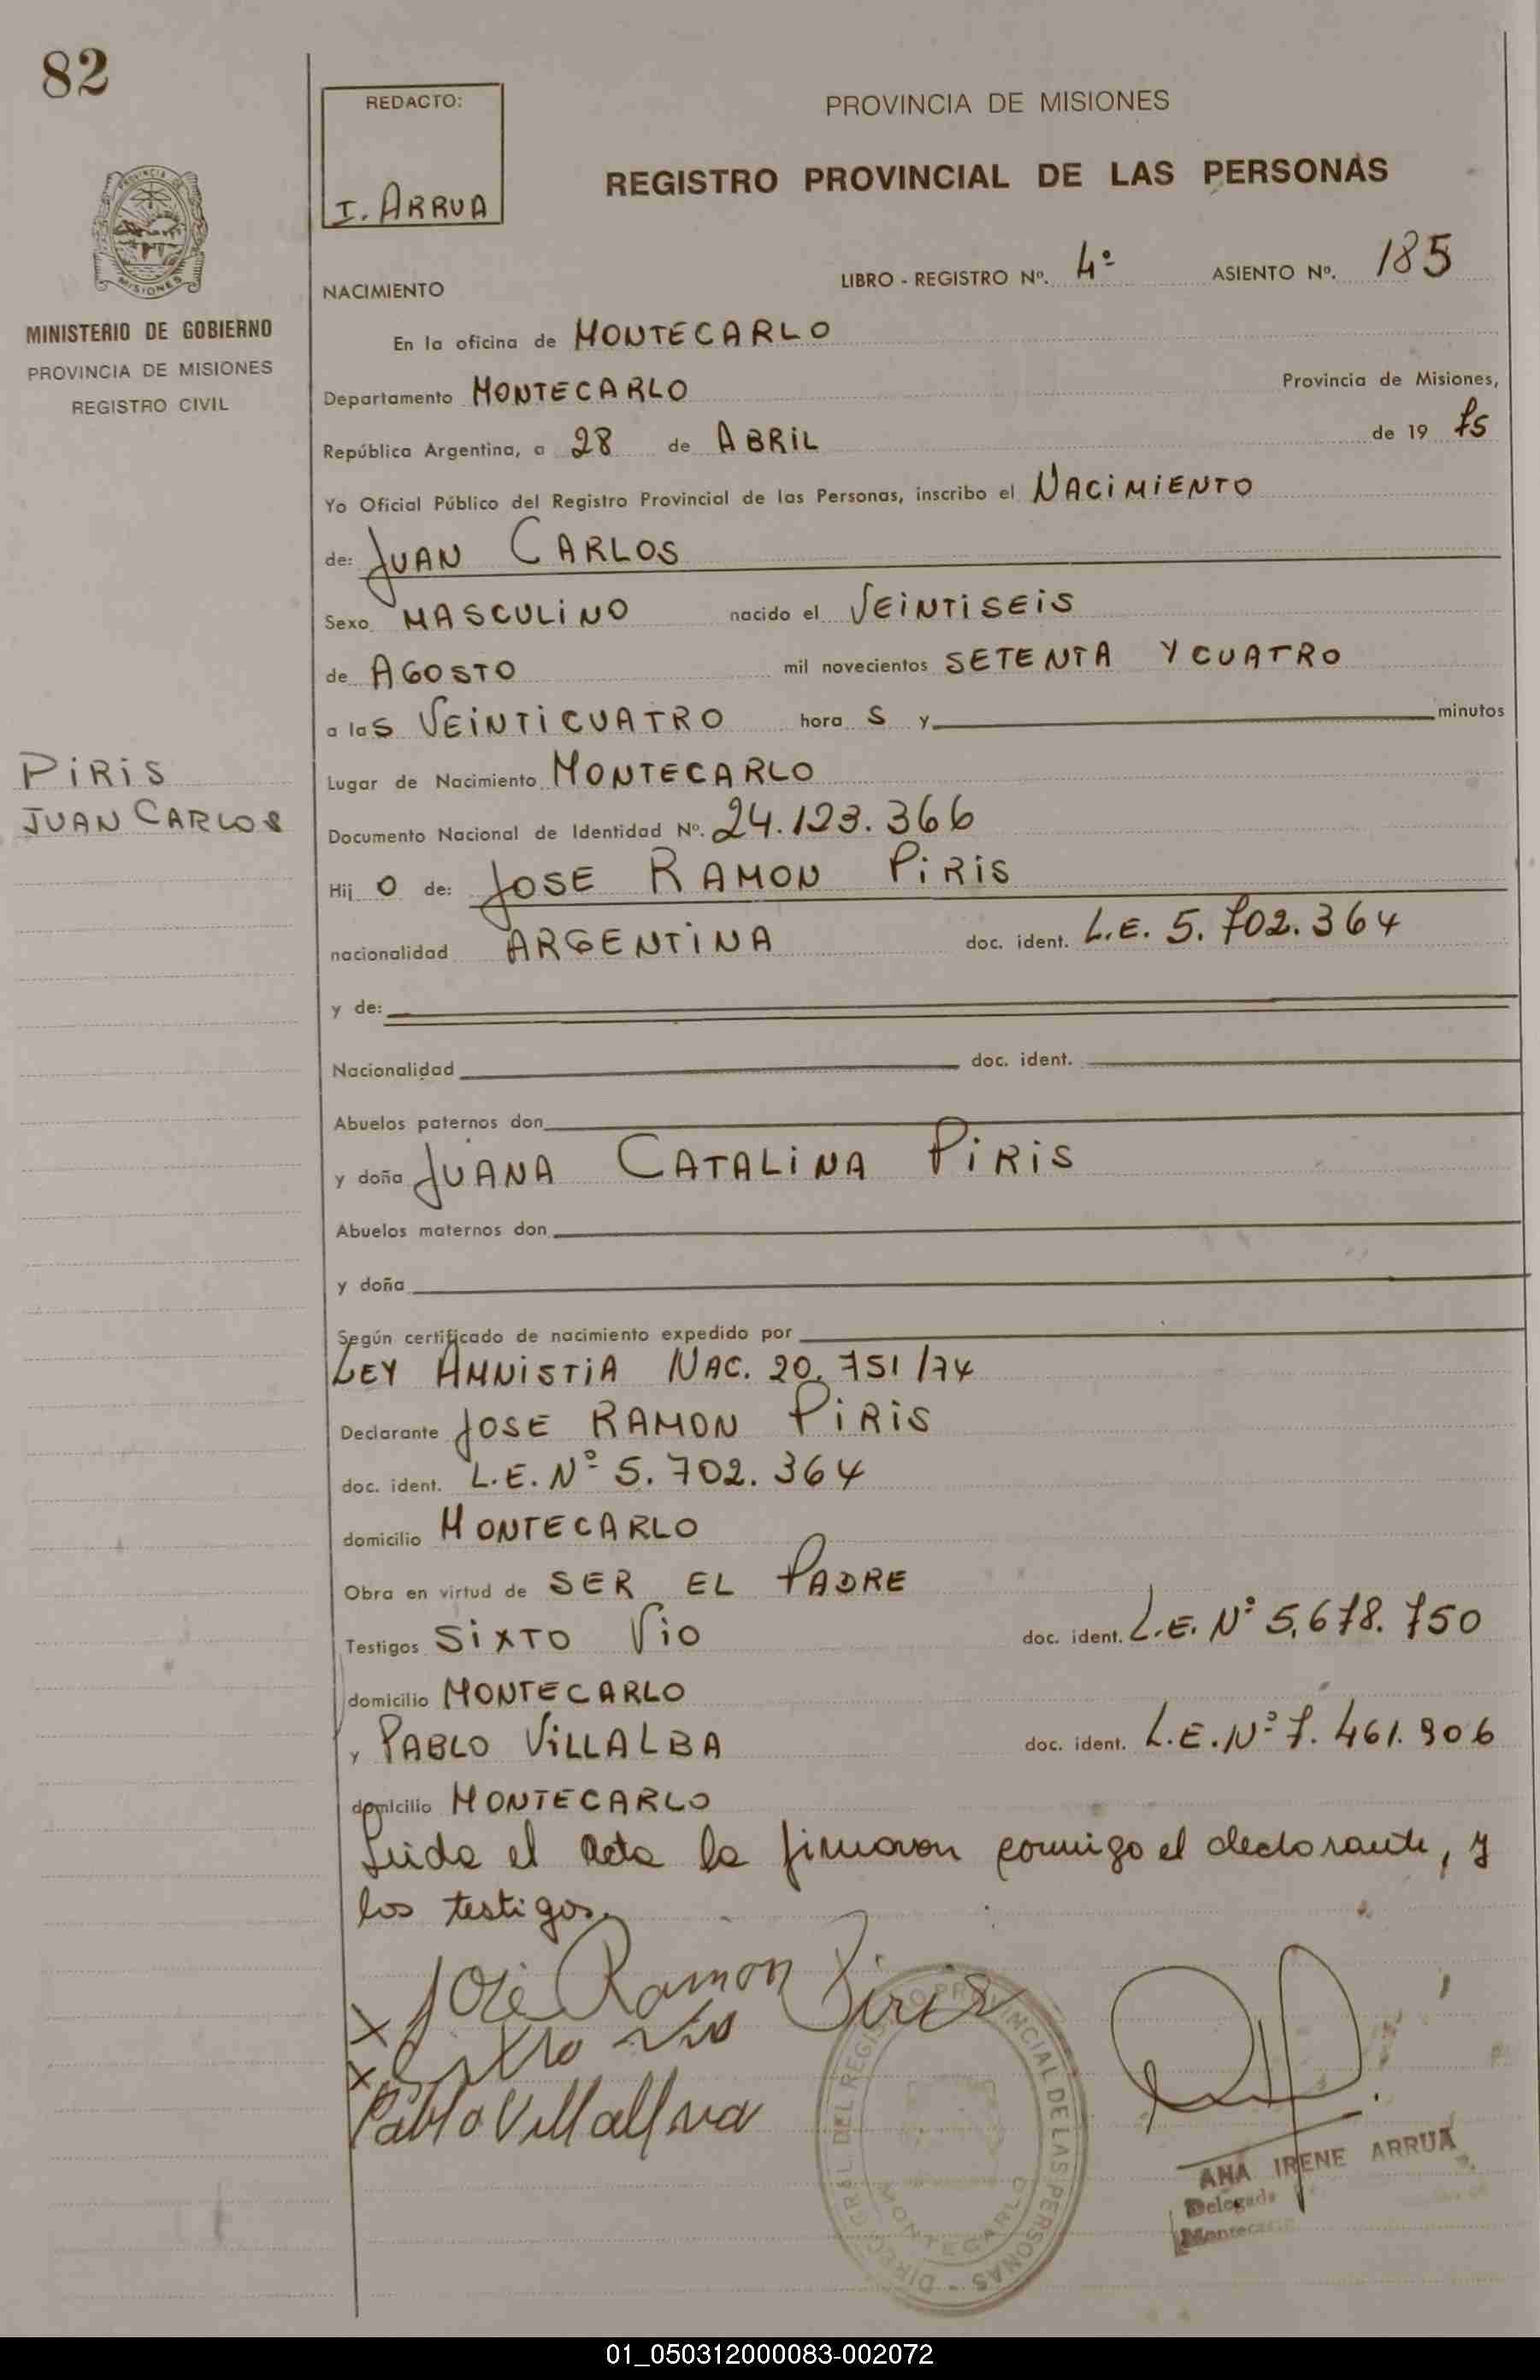 82
REDACTO:
I. ARRUA
PROVINCIA DE MISIONES
REGISTRO PROVINCIAL DE LAS PERSONAS
PROVINCIA DE
MISIONES
MINISTERIO DE GOBIERNO
PROVINCIA DE MISIONES
REGISTRO CIVIL
NACIMIENTO
LIBRO - REGISTRO Nº. 4º ASIENTO Nº. 185
En la oficina de MONTECARLO
Departamento MONTECARLO Provincia de Misiones,
República Argentina, a 28 de ABRIL de 19 75
Yo Oficial Público del Registro Provincial de las Personas, inscribo el NACIMIENTO
de: JUAN CARLOS
Sexo MASCULINO nacido el VEINTISEIS
de AGOSTO mil novecientos SETENTA Y CUATRO
a las VEINTICUATRO hora S y minutos
PIRIS
JUAN CARLOS
Lugar de Nacimiento MONTECARLO
Documento Nacional de Identidad Nº. 24.123.366
Hij O de: JOSE RAMON PIRIS
nacionalidad ARGENTINA doc. ident. L.E. 5.702.364
y de:
Nacionalidad doc. ident.
Abuelos paternos don
y doña JUANA CATALINA PIRIS
Abuelos maternos don
y doña
Según certificado de nacimiento expedido por
LEY AMNISTIA NAC. 20.751/74
Declarante JOSE RAMON PIRIS
doc. ident. L.E. Nº 5.702.364
domicilio MONTECARLO
Obra en virtud de SER EL PADRE
Testigos SIXTO VIO doc. ident. L.E. Nº 5.678.750
domicilio MONTECARLO
y PABLO VILLALBA doc. ident. L.E. Nº 7.461.906
domicilio MONTECARLO
Leida el Acta la firmaron conmigo el declarante, y
los testigos.
X José Ramon Piris
X Sixto Vio
Pablo Villalva
DIREC. GRAL. DEL REGISTRO PROVINCIAL DE LAS PERSONAS -
MONTECARLO
ANA IRENE ARRUA
Delegada
Montecarlo
01_050312000083-002072